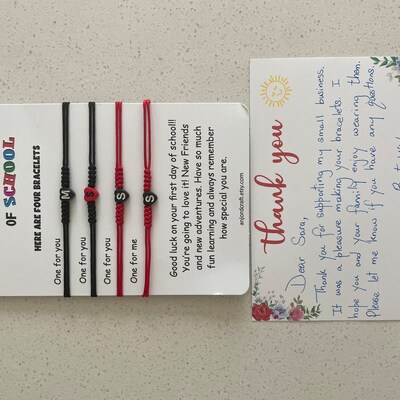 OF SCHOOL
HERE ARE YOUR BRACELETS
One for you
M
One for you
S
One for you
S
One for me
S
Good luck on your first day of school!!!
You're going to love it! New Friends
and new adventures. Have so much
fun learning and always remember
how special you are.
thank you
Dear Sara,
Thank you for supporting my small business.
It was a pleasure making your bracelets. I
hope you and your family enjoy wearing them.
Please let me know if you have any questions.